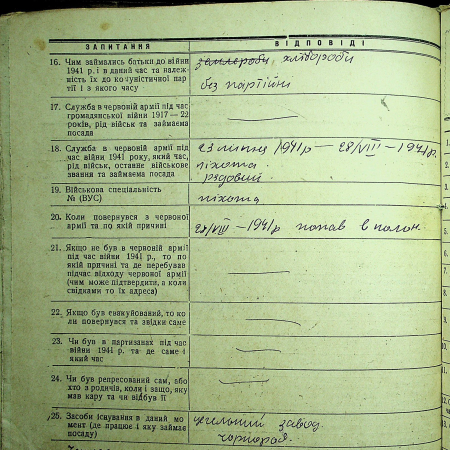 ЗАПИТАННЯ
ВІДПОВІДІ
16. Чим займались батьки до війни
1941 р. і в даний час та належ-
ність їх до комуністичної пар-
тії і з якого часу
землероби хлібороби
без партійни
17. Служба в червоній армії під час
громадянської війни 1917—22
років, рід військ та займаєма
посада
18. Служба в червоній армії під
час війни 1941 року, який час,
рід військ, останнє військове
звання та займаєма посада
23 липня 1941 р — 28/VIII — 1941 р.
піхота
рядовий
19. Військова спеціальність
№ (ВУС)
піхота
20. Коли повернувся з червоної
армії та по якій причині
28/VIII — 1941 р попав в полон.
21. Якщо не був в червоній армії
під час війни 1941 р., то по
якій причині та де перебував
підчас відходу червоної армії
(чим може підтвердити, а коли
свідками то їх адреса)
22. Якщо був евакуйований, то ко-
ли повернувся та звідки саме
23. Чи був в партизанах під час
війни 1941 р. та де саме і
який час
24. Чи був репресований сам, або
хто з родичів, коли і защо, яку
мав кару та чи відбув її
25. Засоби існування в даний мо-
мент (де працює і яку займає
посаду)
цегельний завод